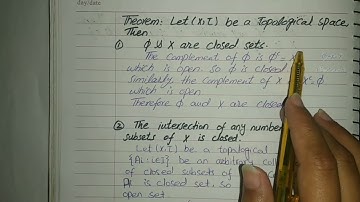 day/date
Theorem: Let (X,τ) be a Topological space.
Then
① ϕ & X are closed sets.
The complement of ϕ is ϕᶜ = X
which is open. So ϕ is closed
Similarly the complement of X Xᶜ=ϕ
which is open
Therefore ϕ and X are closed
② The intersection of any number
subsets of X is closed.
Let (X,τ) be a topological
be an arbitrary
of closed subsets of
is closed set. So
open set.